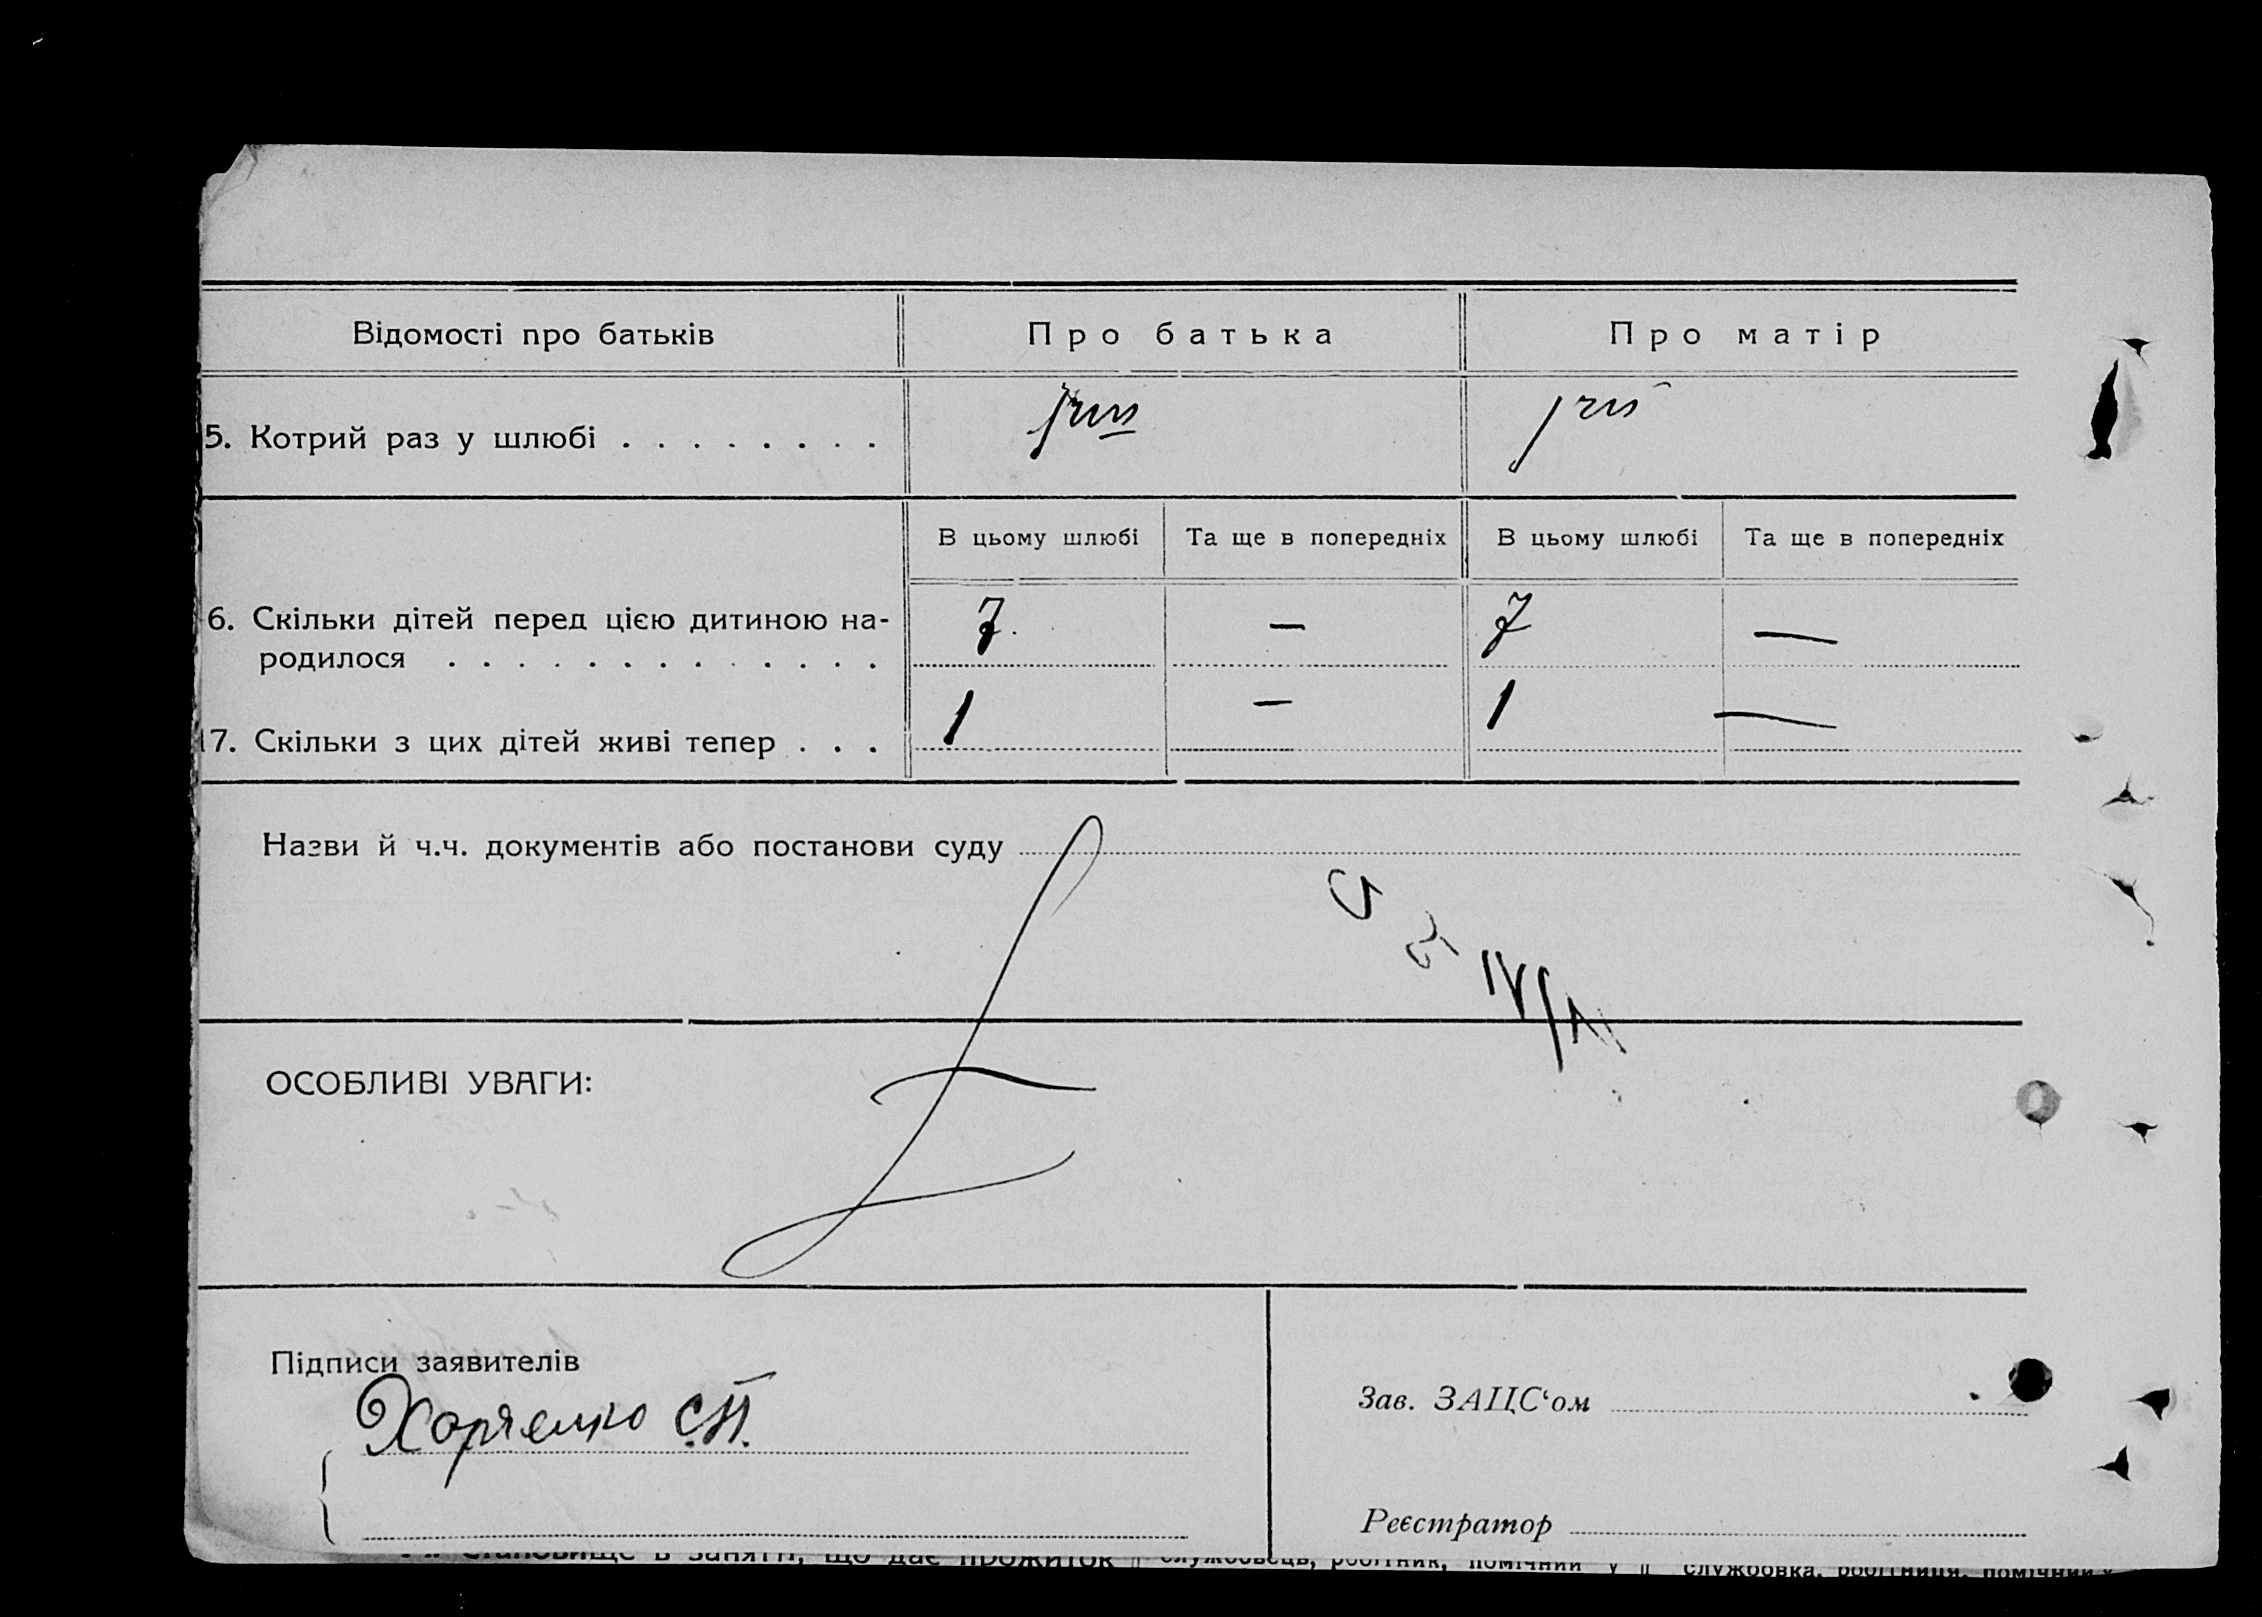 Відомості про батьків Про батька Про матір
5. Котрий раз у шлюбі
В цьому шлюбі Та ще в попередніх В цьому шлюбі Та ще в попередніх
6. Скільки дітей перед цією дитиною на-
родилося 7. — 7 —
17. Скільки з цих дітей живі тепер 1 — 1 —
Назви й ч.ч. документів або постанови суду
ОСОБЛИВІ УВАГИ:
Підписи заявителів
С.П.
Зав. ЗАЦС‘ом
Реєстратор
Становище в занятті, що дає прожиток службовець, робітник, помічний у службовка, робітниця, помічний у